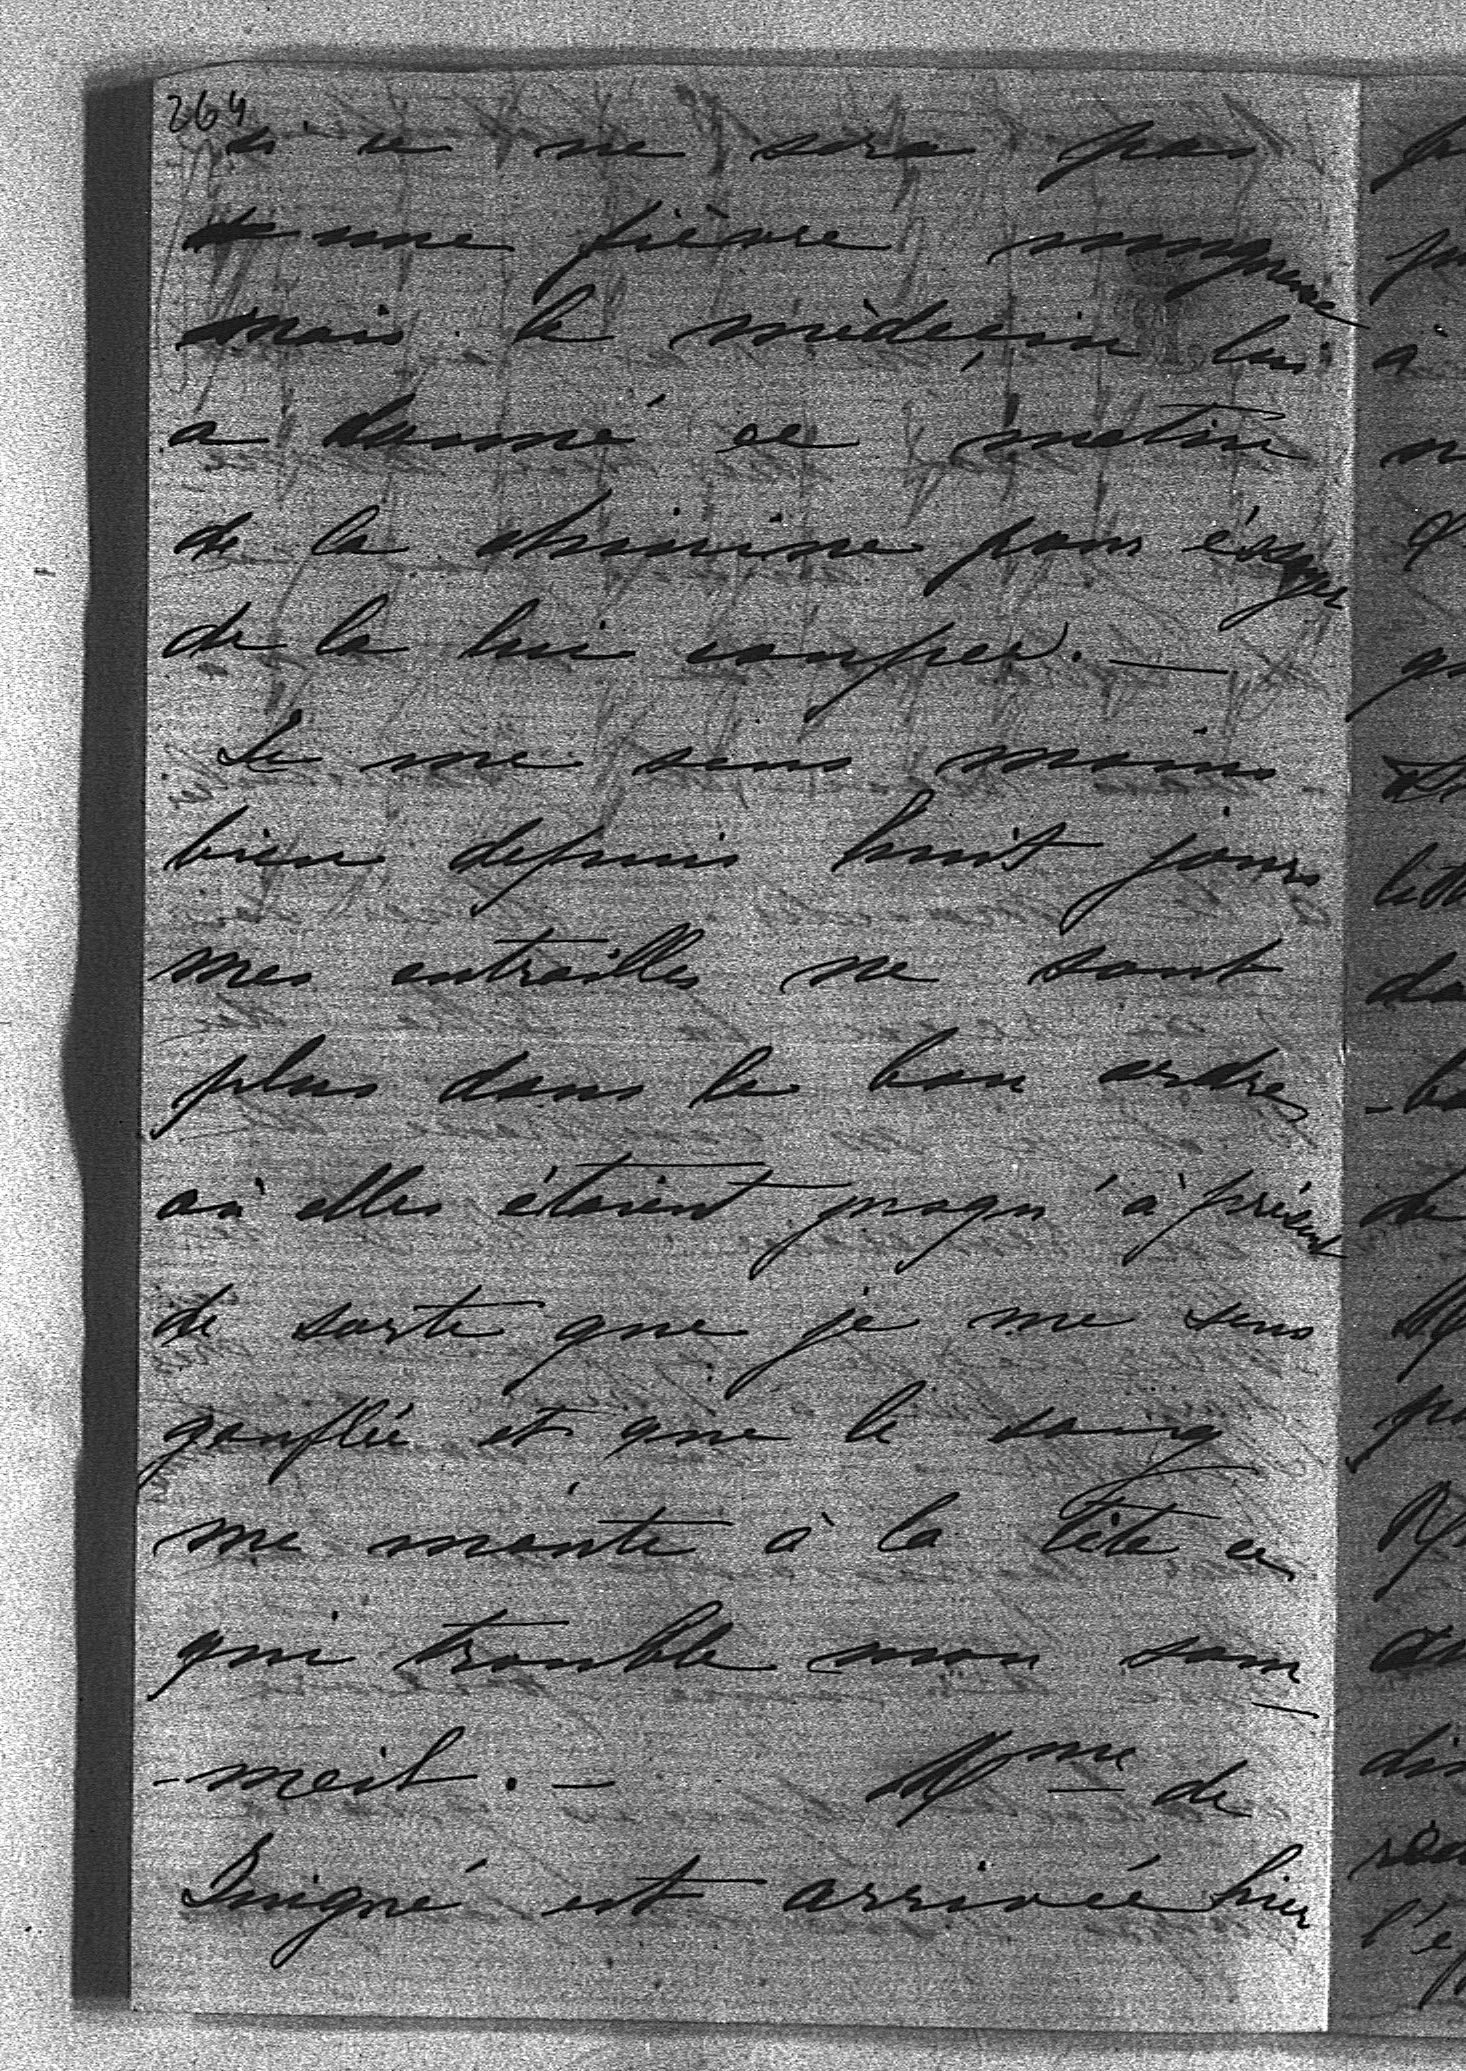 264
si ce ne sera pas
une fièvre muqueuse
mais le médeçin lui
a donné ce matin
de la chinine pour éssayer
de la lui couper. —
Je me sens moins
bien depuis huit jours
mes entrailles ne sont
plus dans le bon ordre,
où elles étaient jusqu'à présent
de sorte que je me sens
gonflée et que le sang
me monte à la tête ce
qui trouble mon som-
-meil. — Mme de
est arrivée hier